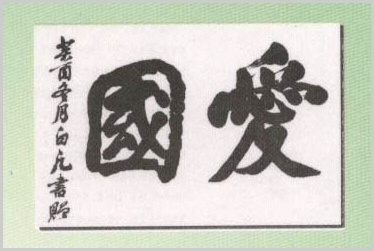 愛國
癸酉冬月白凡書贈